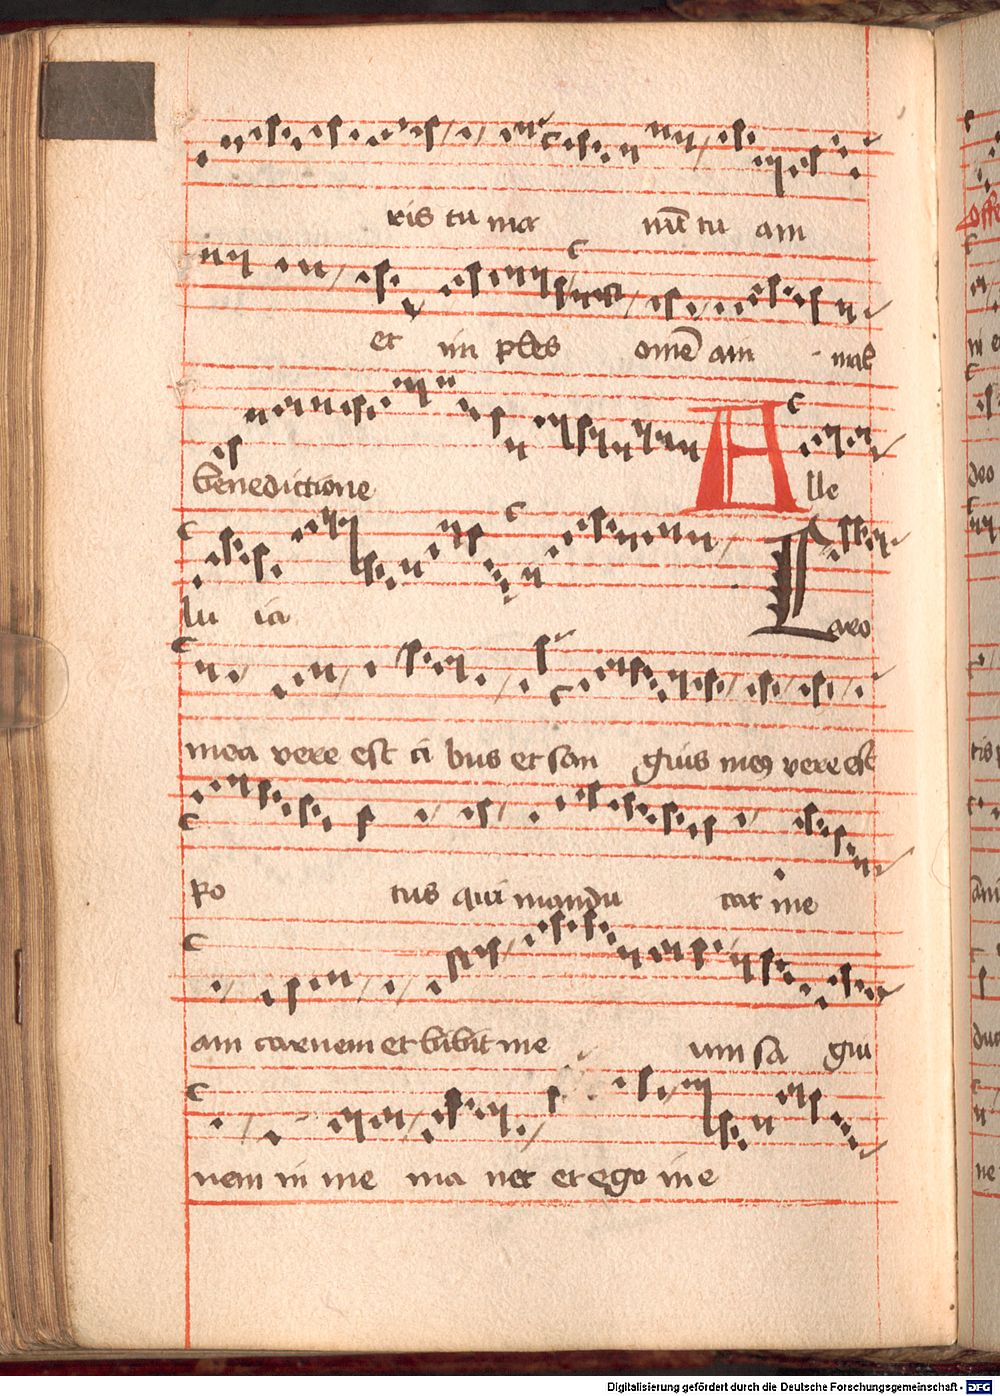 ris tu ma nū tu am
et im ples omē am mal
benedictione Alle
lu ia Caro
mea vere est ci bus et san guis meꝯ vere est
po tus qui mandu cat me
am carnem et bibit me um sa gui
nem in me ma net et ego in e
Digitalisierung gefördert durch die Deutsche Forschungsgemeinschaft - DFG